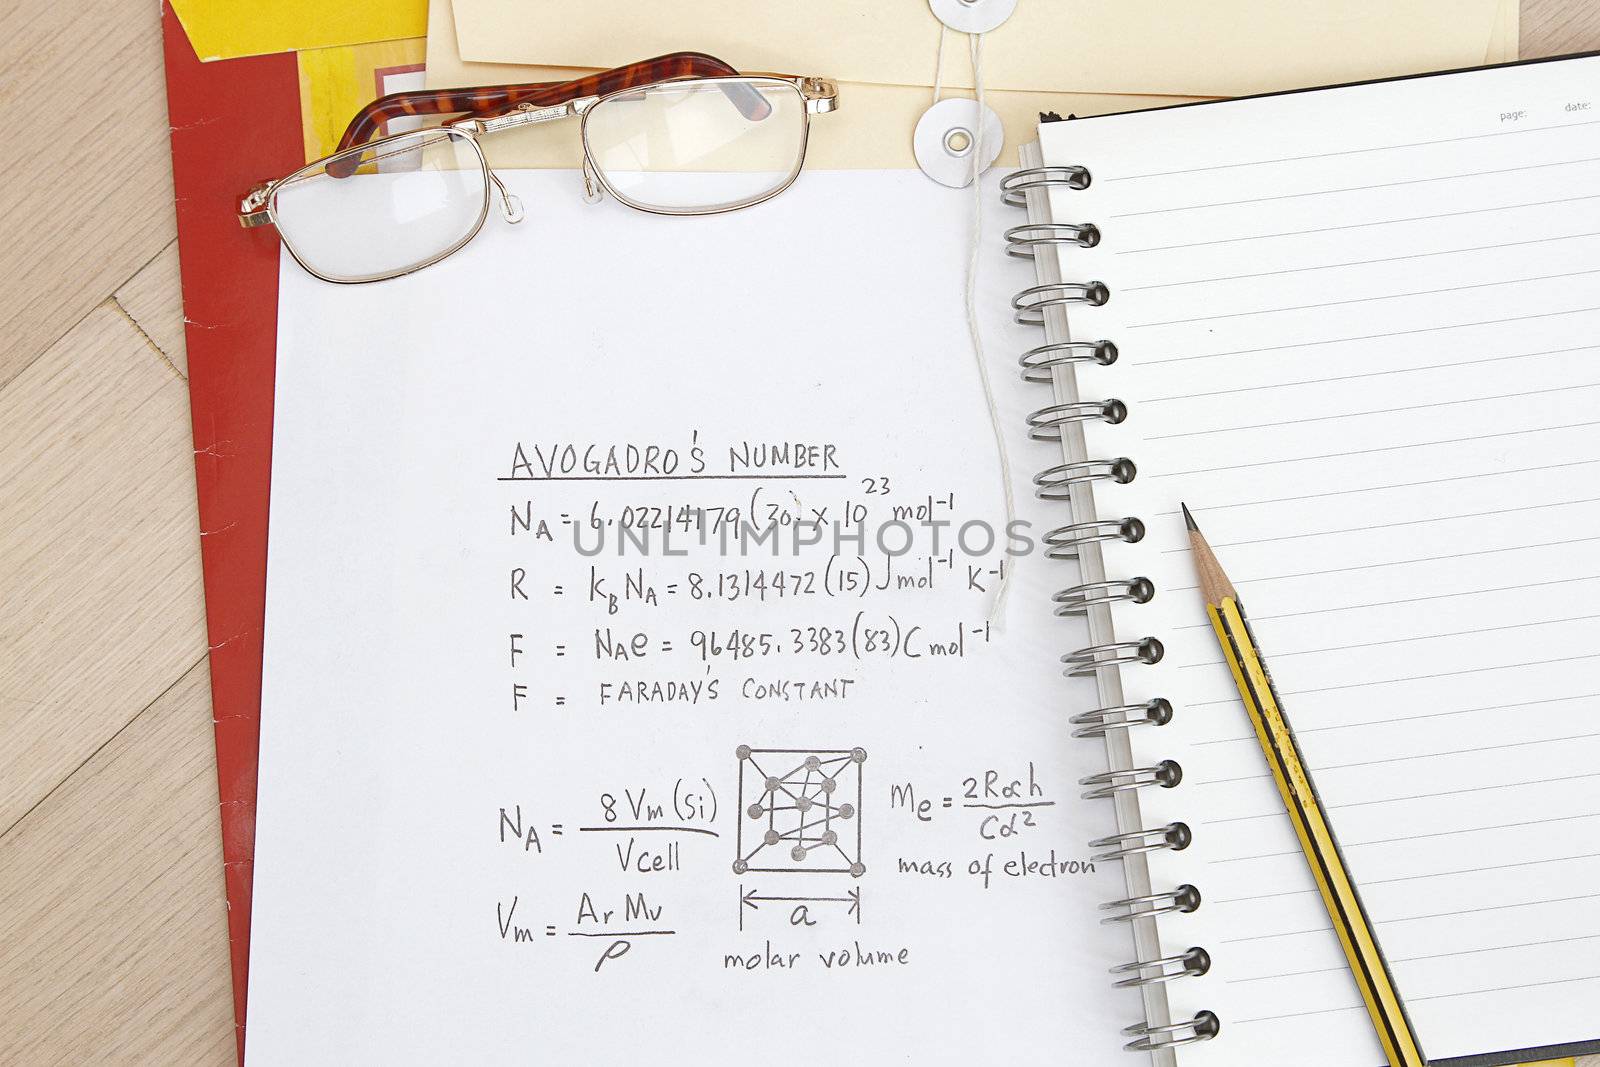 page: date:
AVOGADRO'S NUMBER
N_A = 6.02214179(30) x 10^23 mol^-1
UNLIMPHOTOS
R = k_B N_A = 8.1314472(15) J mol^-1 K^-1
F = N_A e = 96485.3383(83) C mol^-1
F = FARADAY'S CONSTANT
N_A = 8 Vm (Si) / Vcell
Me = 2R∞h / Cα^2
mass of electron
Vm = Ar Mu / ρ
a
molar volume